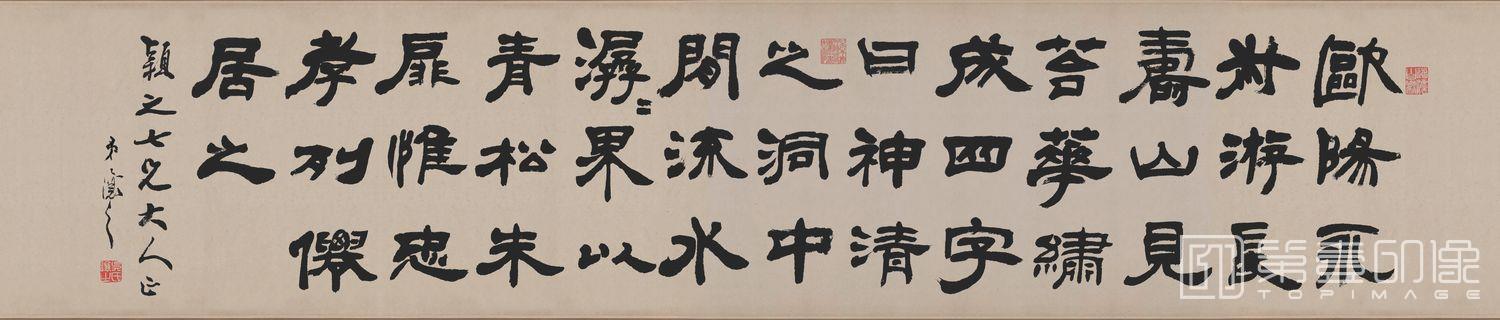 歐陽永
叔游長
壽山見
苔華繡
成四字
曰神清
之洞中
間流水
潺〻果以
青松朱
扉惟忠
孝列僊
居之
穎之七兄大人正
弟讓之
TOPIMAGE